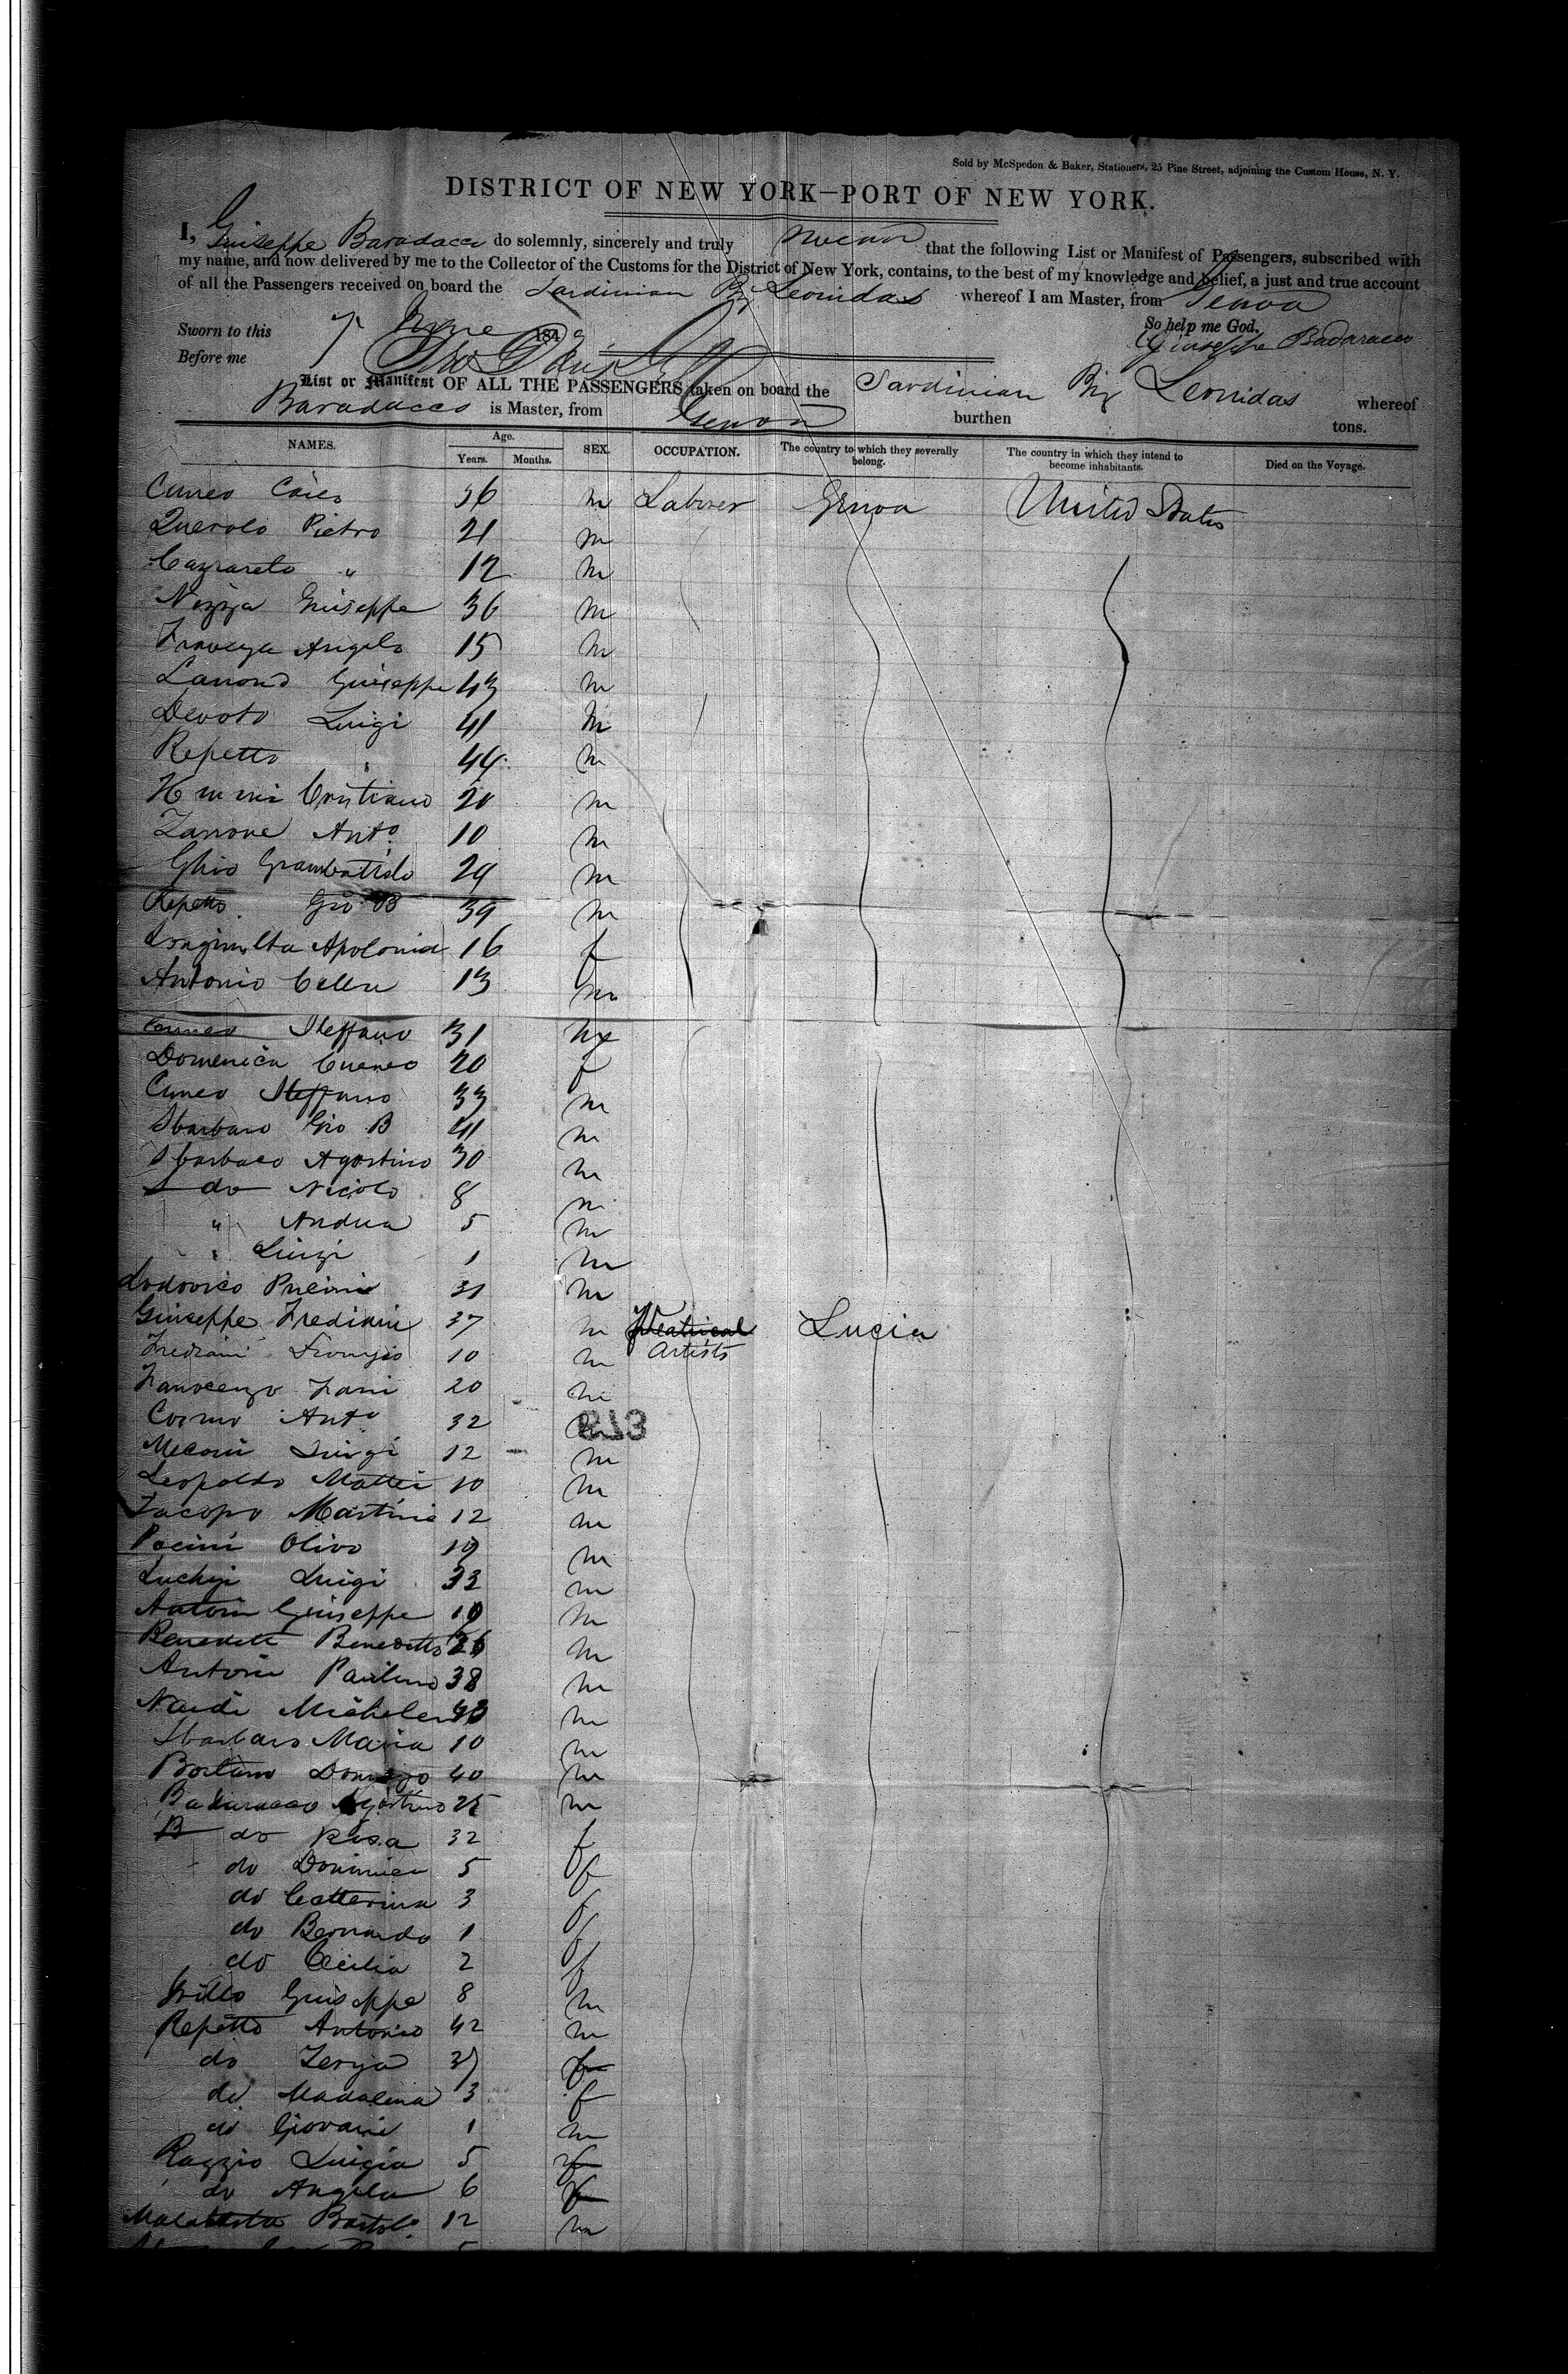 Sold by McSpedon & Baker, Stationers, 25 Pine Street, adjoining the Custom House, N. Y.
DISTRICT OF NEW YORK—PORT OF NEW YORK.
I, Giuseppe Baradacco do solemnly, sincerely and truly swear that the following List or Manifest of Passengers, subscribed with
my name, and now delivered by me to the Collector of the Customs for the District of New York, contains, to the best of my knowledge and belief, a just and true account
of all the Passengers received on board the Sardinian Brig Leonidas whereof I am Master, from Genoa
So help me God.
Sworn to this 7 June 184
Giuseppe Badaracco
Before me
List or Manifest OF ALL THE PASSENGERS taken on board the Sardinian Brig Leonidas whereof
Baradacco is Master, from Genoa burthen tons.
NAMES. Age. Years. Months. SEX. OCCUPATION. The country to which they severally belong. The country in which they intend to become inhabitants. Died on the Voyage.
Cuneo 36 m Laborer Genoa United States
Querolo Pietro 21 m
" 12 m
Nizza Giuseppe 36 m
Angelo 15 m
Giuseppe 43 m
Devoto Luigi 41 m
Repetto " 44 m
Cristiano 20 m
Zanone Anto 10 m
Ghio 29 m
Repetto Gio B 39 m
Apolonia 16 f
Antonio Cella 13 m
Cuneo Steffano 31 m
Domenica Cuneo 20 f
Cuneo Steffano 33 m
Sbarbaro Gio B 41 m
Sbarbaro Agostino 30 m
do Nicolo 8 m
" Andrea 5 m
" Luigi 1 m
Lodovico 31 m
Giuseppe Frediani 37 m Theatrical Artists Lucia
Frediani 10 m
20 m
Cosmo Anto 32 m
873
Meconi Luigi 12 m
Leopoldo Mattei 10 m
Jacopo Martini 12 m
Pacini Olivo 19 m
Luchesi Luigi 33 m
Antoni Giuseppe 10 m
Benedetti Benedetto 26 m
Antoni Paulino 38 m
Nardi Michele 43 m
Sbarbaro Maria 10 m
40 m
Badaracco Agostino 25 m
B do Rosa 32 f
do Dominica 5 f
do Catterina 3 f
do Bernardo 1 f
do Cecilia 2 f
Giuseppe 8 m
Repetto Antonio 42 m
do 37 f
do Madalena 3 f
do Giovani 1 m
Raggio Luigia 5 f
do Angela 6 f
Malatesta Bartolo 12 m